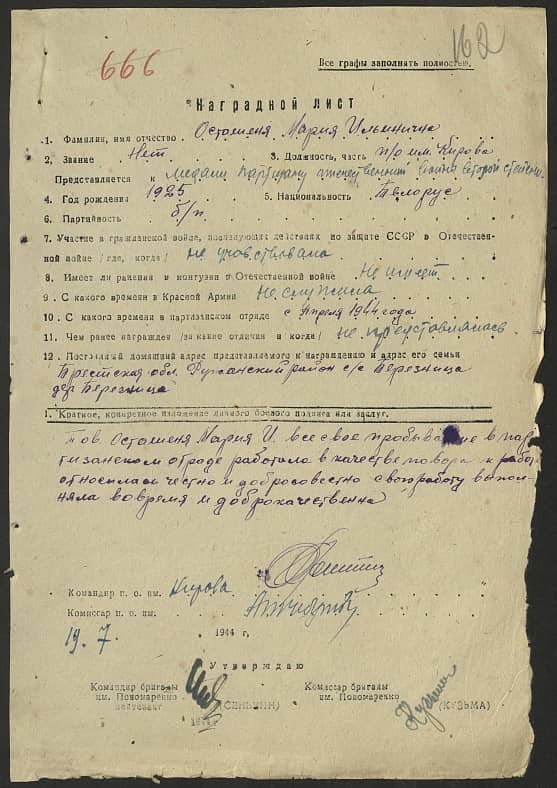 666
162
Все графы заполнять полностью.
Наградной лист
1. Фамилия, имя отчество Остаменя Мария Ильинична
2. Звание Нет 3. Должность, часть п/о им. Кирова
Представляется к медали Партизану отечественной войны второй степени
4. Год рождения 1925 5. Национальность Белорус
6. Партийность б/п
7. Участие в гражданской войне, последующих действиях по защите СССР в Отечествен-
ной войне /где, когда/ не участвовала
8. Имеет ли ранения и контузии в Отечественной войне Не имеет
9. С какого времени в Красной Армии Не служила
10. С какого времени в партизанском отряде с Апреля 1944 года
11. Чем ранее награжден /за какие отличия и когда/ не представлялась
12. Постоянный домашний адрес представляемого к награждению и адрес его семьи
Брестская обл. Ружанский район с/с Березница
дер Березница
1. Краткое, конкретное изложение личного боевого подвига или заслуг.
Тов. Остаменя Мария И. все свое пребывание в пар
тизанском отряде работала в качестве повора к работе
относилась честно и добросовестно свою работу выпол-
няла во время и доброкачественна
Командир п. о. им. Кирова
Комиссар п. о. им.
19. 7. 1944 г.
Утверждаю
Командир бригады Комиссар бригады
им. Пономаренко им. Пономаренко
лейтенант (СЕНЬКИН) Кузьма (КУЗЬМА)